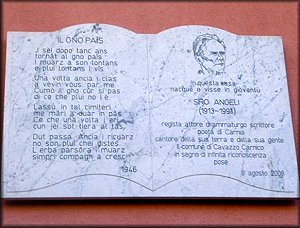 IL GNO PAÎS
I sei dopo tanc ains
tornât al gno paîs
I muarz a son lontans
e plui lontans i vîs
Una volta ancja i clas
a vevin vous par me
Cumò il gno cûr si pas
di ce che plui no l è
Lassù in tal cimiteri
me mari a duar in pâs
Ce che una volta i eri
cun jei sot tiera al tâs
Dut passa Ancja i ricuarz
no son plui chei di stes
L'erba parsora i muarz
simpri compagn a cres
1946
In questa casa
nacque e visse in gioventù
SIRO ANGELI
(1913-1991)
regista attore drammaturgo scrittore
poeta di Carnia
cantore della sua terra e della sua gente
il comune di Cavazzo Carnico
in segno di infinita riconoscenza
pose
9 agosto 2008